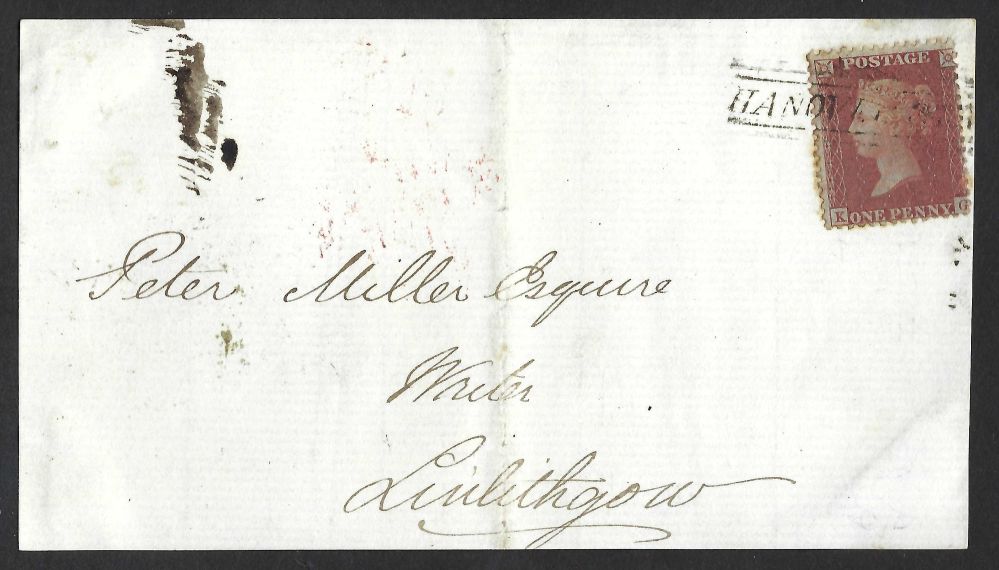 POSTAGE
K ONE PENNY G
Peter Miller Esquire
Writer
Linlithgow